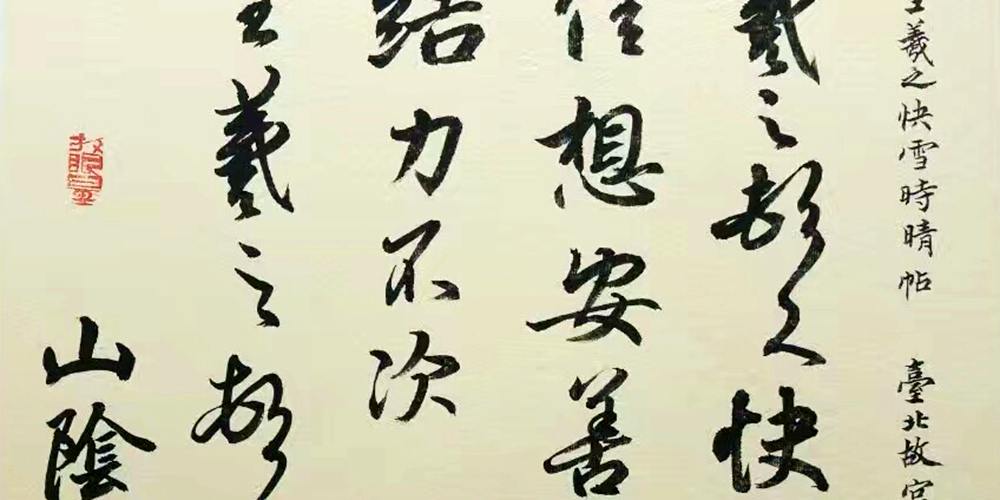 王羲之快雪時晴帖 臺北故宮
羲之頓首快
佳想安善
結力不次
王羲之頓
山陰